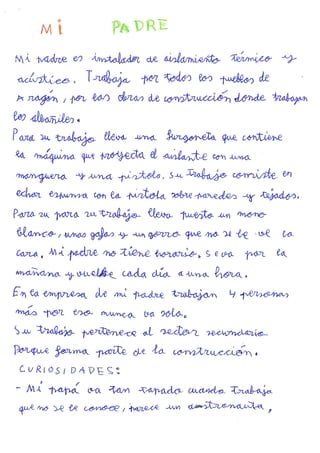 Mi PADRE
Mi padre es instalador de aislamiento térmico y
acústico. Trabaja por todos los pueblos de
Aragón, por las obras de construcción donde trabajan
los albañiles.
Para su trabajo lleva una furgoneta que contiene
la máquina que proyecta el aislante con una
manguera y una pistola. Su trabajo consiste en
echar espuma con la pistola sobre paredes y tejados.
Para su para su trabajo lleva puesto un mono
blanco, unas gafas y un gorro que no se le ve la
cara. Mi padre no tiene horario, se va por la
mañana y vuelve cada día a una hora.
En la empresa de mi padre trabajan 4 personas
más por eso nunca va solo.
Su trabajo pertenece al sector secundario
porque forma parte de la construcción.
CURIOSIDADES:
- Mi papá va tan tapado cuando trabaja
que no se le conoce, parece un astronauta.